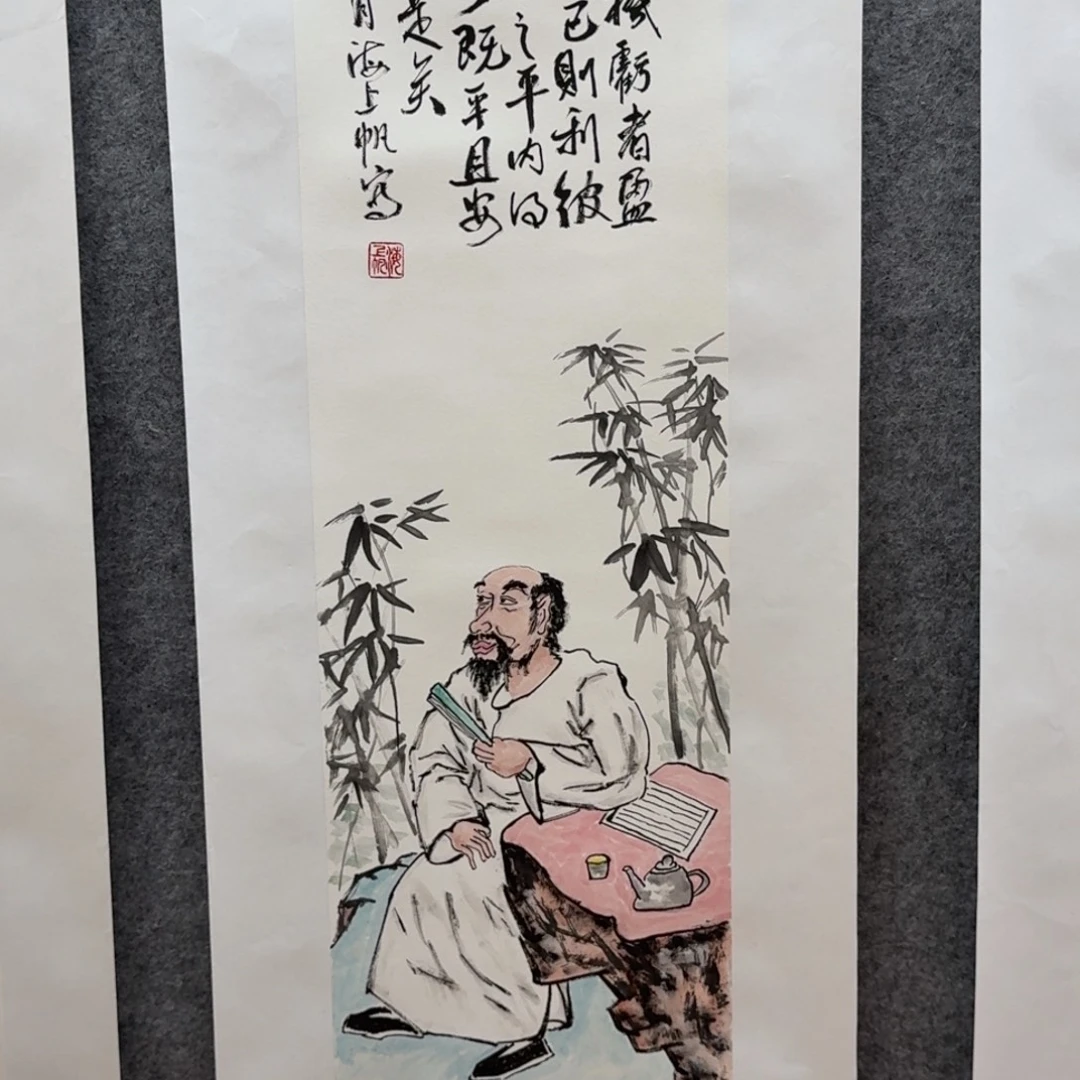 機虧者盈
己則利彼
之平内得
既平且安
是矣
月海上帆寫